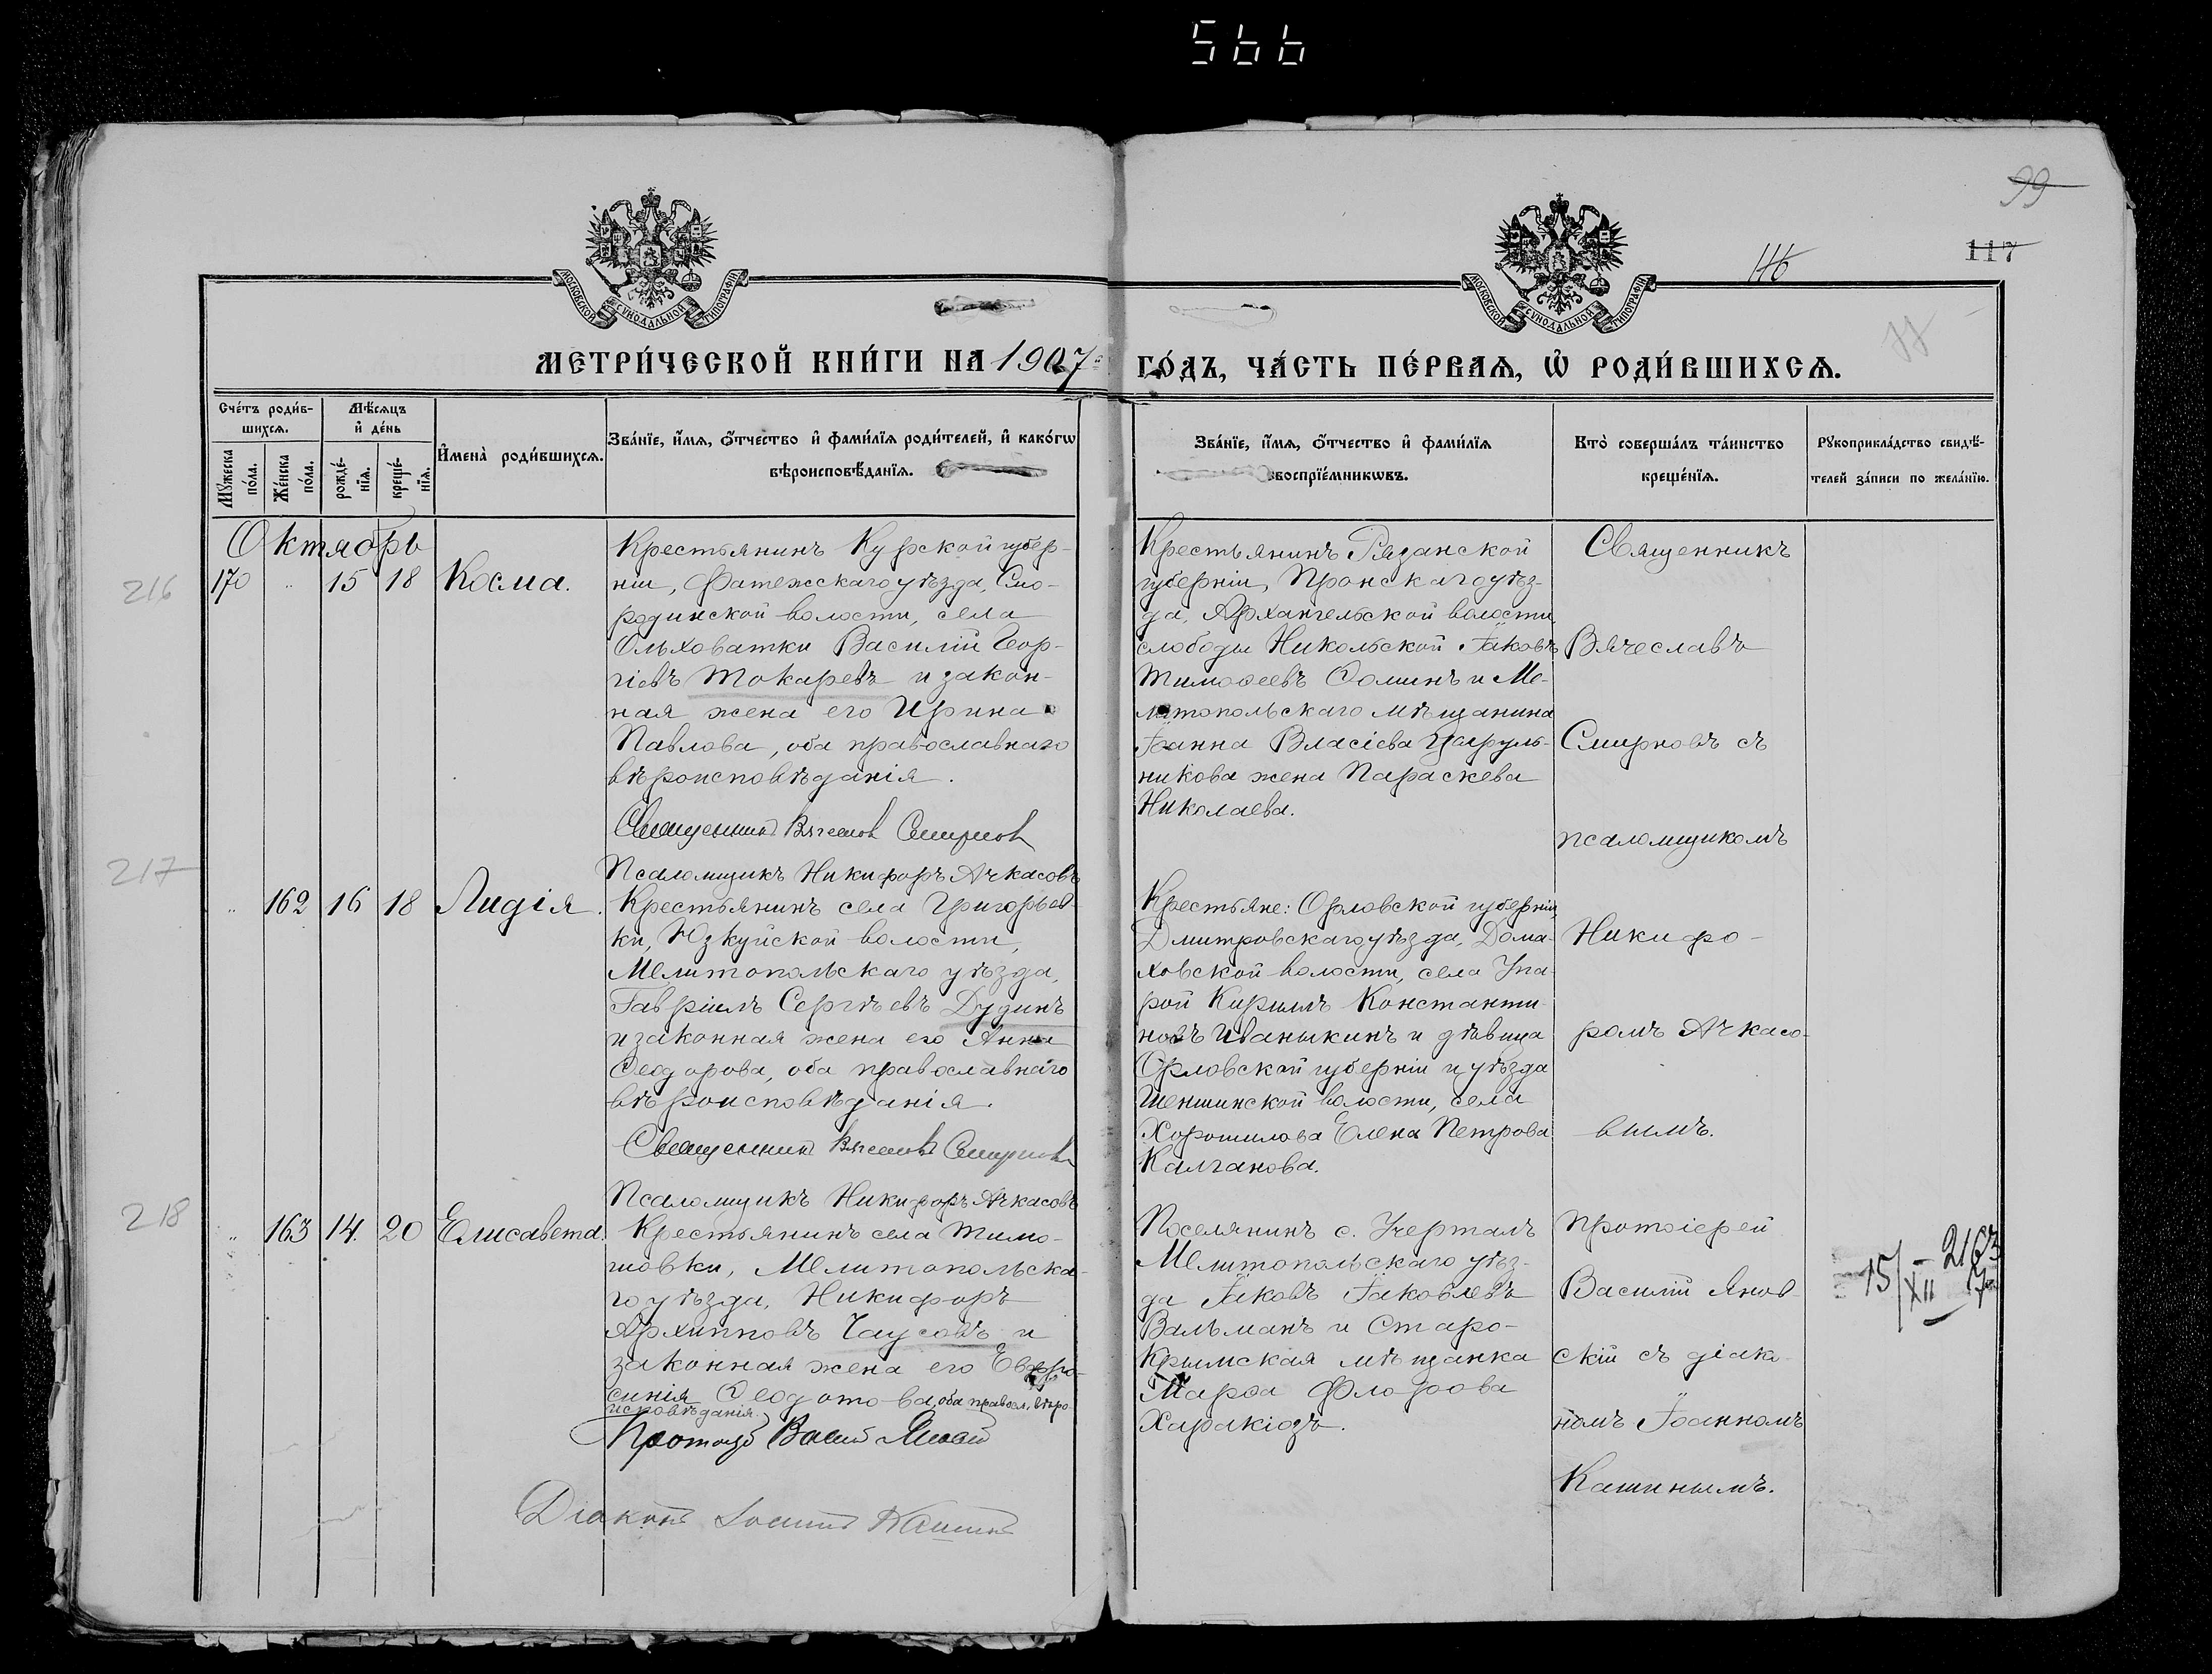 566
99
117
116
77
МОСКОВСКОЙ СѴНОДАЛЬНОЙ ТИПОГРАФІИ
МОСКОВСКОЙ СѴНОДАЛЬНОЙ ТИПОГРАФІИ
МЕТРИ́ЧЕСКОЙ КНИ́ГИ НА 1907 ГО́ДЪ, ЧА́СТЬ ПЕ́РВАѦ, Ѡ҆ РОДИ́ВШИХСѦ.
Сче́тъ роди́в-
шихсѧ.
Мꙋжеска
по́ла.
Же́нска
по́ла.
Мѣ́сѧцъ
и҆ де́нь
рожде́-
нїѧ.
креще́-
нїѧ.
И҆мена̀ роди́вшихсѧ.
Зва́нїе, и҆́мѧ, ѻ҆́тчество и҆ фами́лїѧ роди́телей, и҆ како́гѡ
вѣроисповѣ́данїѧ.
Зва́нїе, и҆́мѧ, ѻ҆́тчество и҆ фами́лїѧ
воспрїе́мникѡвъ.
Кто̀ соверша́лъ та́инство
креще́нїѧ.
Рꙋкоприкла́дство свидѣ́-
телей за́писи по жела́нїю.
Октябрь
216
170 " 15 18 Косма.
Крестьянинъ Курской губер-
ніи, Фатежскаго уѣзда, Смо-
родинской волости, села
Ольховатки Василій Геор-
гіевъ Токаревъ и закон-
ная жена его Ирина
Павлова, оба православнаго
вѣроисповѣданія.
Священникъ Вячеслав Смирнов
Псаломщикъ Никифоръ Ачкасовъ
Крестьянинъ Рязанской
губерніи, Пронскаго уѣз-
да, Архангельской волости,
слободы Никольской Іаковъ
Тимоѳеевъ Ѳоминъ и Ме-
литопольскаго мѣщанина
Іоанна Власіева
никова жена Параскева
Николаева.
Священникъ
Вячеславъ
Смирновъ съ
псаломщикомъ
Никифо-
ромъ Ачкасо-
вымъ.
217
" 162 16 18 Лидія.
Крестьянинъ села Григорьев-
ки, Юзкуйской волости,
Мелитопольскаго уѣзда,
Гавріилъ Сергѣевъ Дудинъ
и законная жена его Анна
Ѳеодорова, оба православнаго
вѣроисповѣданія.
Священникъ Вячеслав Смирнов
Псаломщикъ Никифоръ Ачкасовъ
Крестьяне: Орловской губерніи,
Дмитровскаго уѣзда, Дома-
ховской волости, села Упа-
рой Кириллъ Константи-
новъ Иваныкинъ и дѣвица
Орловской губерніи и уѣзда
Шеншинской волости, села
Хорошилова Елена Петрова
Калганова.
218
" 163 14. 20 Елисавета.
Крестьянинъ села Тимо-
шовки, Мелитопольска-
го уѣзда, Никифоръ
Архипповъ Чаусовъ и
законная жена его Евфро-
синія Ѳеодотова, оба правосл. вѣро-
исповѣданія.
Протоіер Васил
Діаконъ Іоаннъ Кашинъ
Поселянинъ с. Учерталъ
Мелитопольскаго уѣз-
да Іаковъ Іаковлевъ
Вальманъ и Старо-
Крымская мѣщанка
Марѳа Флорова
Харакіозъ.
Протоіерей
Василій Янов-
скій съ діако-
номъ Іоанномъ
Кашинымъ.
15/XII – 2163
7